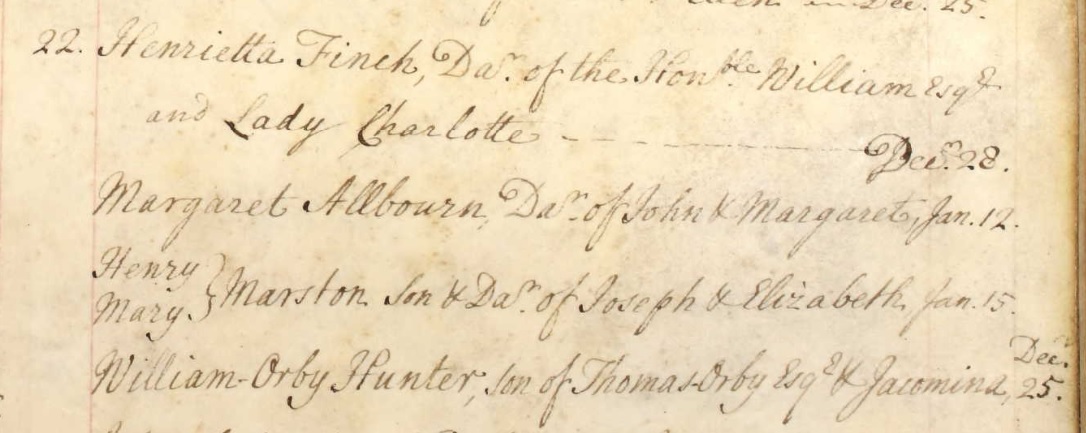 in Dec. 25.
22. Henrietta Finch, Dar. of the Honble. William Esqr.
and Lady Charlotte - - - Decr. 28.
Margaret Allbourn, Dar. of John & Margaret, Jan. 12.
Henry
Mary } Marston Son & Dar. of Joseph & Elizabeth Jan. 15.
William-Orby Hunter, Son of Thomas-Orby Esqr. & Jacomina, Dec. 25.